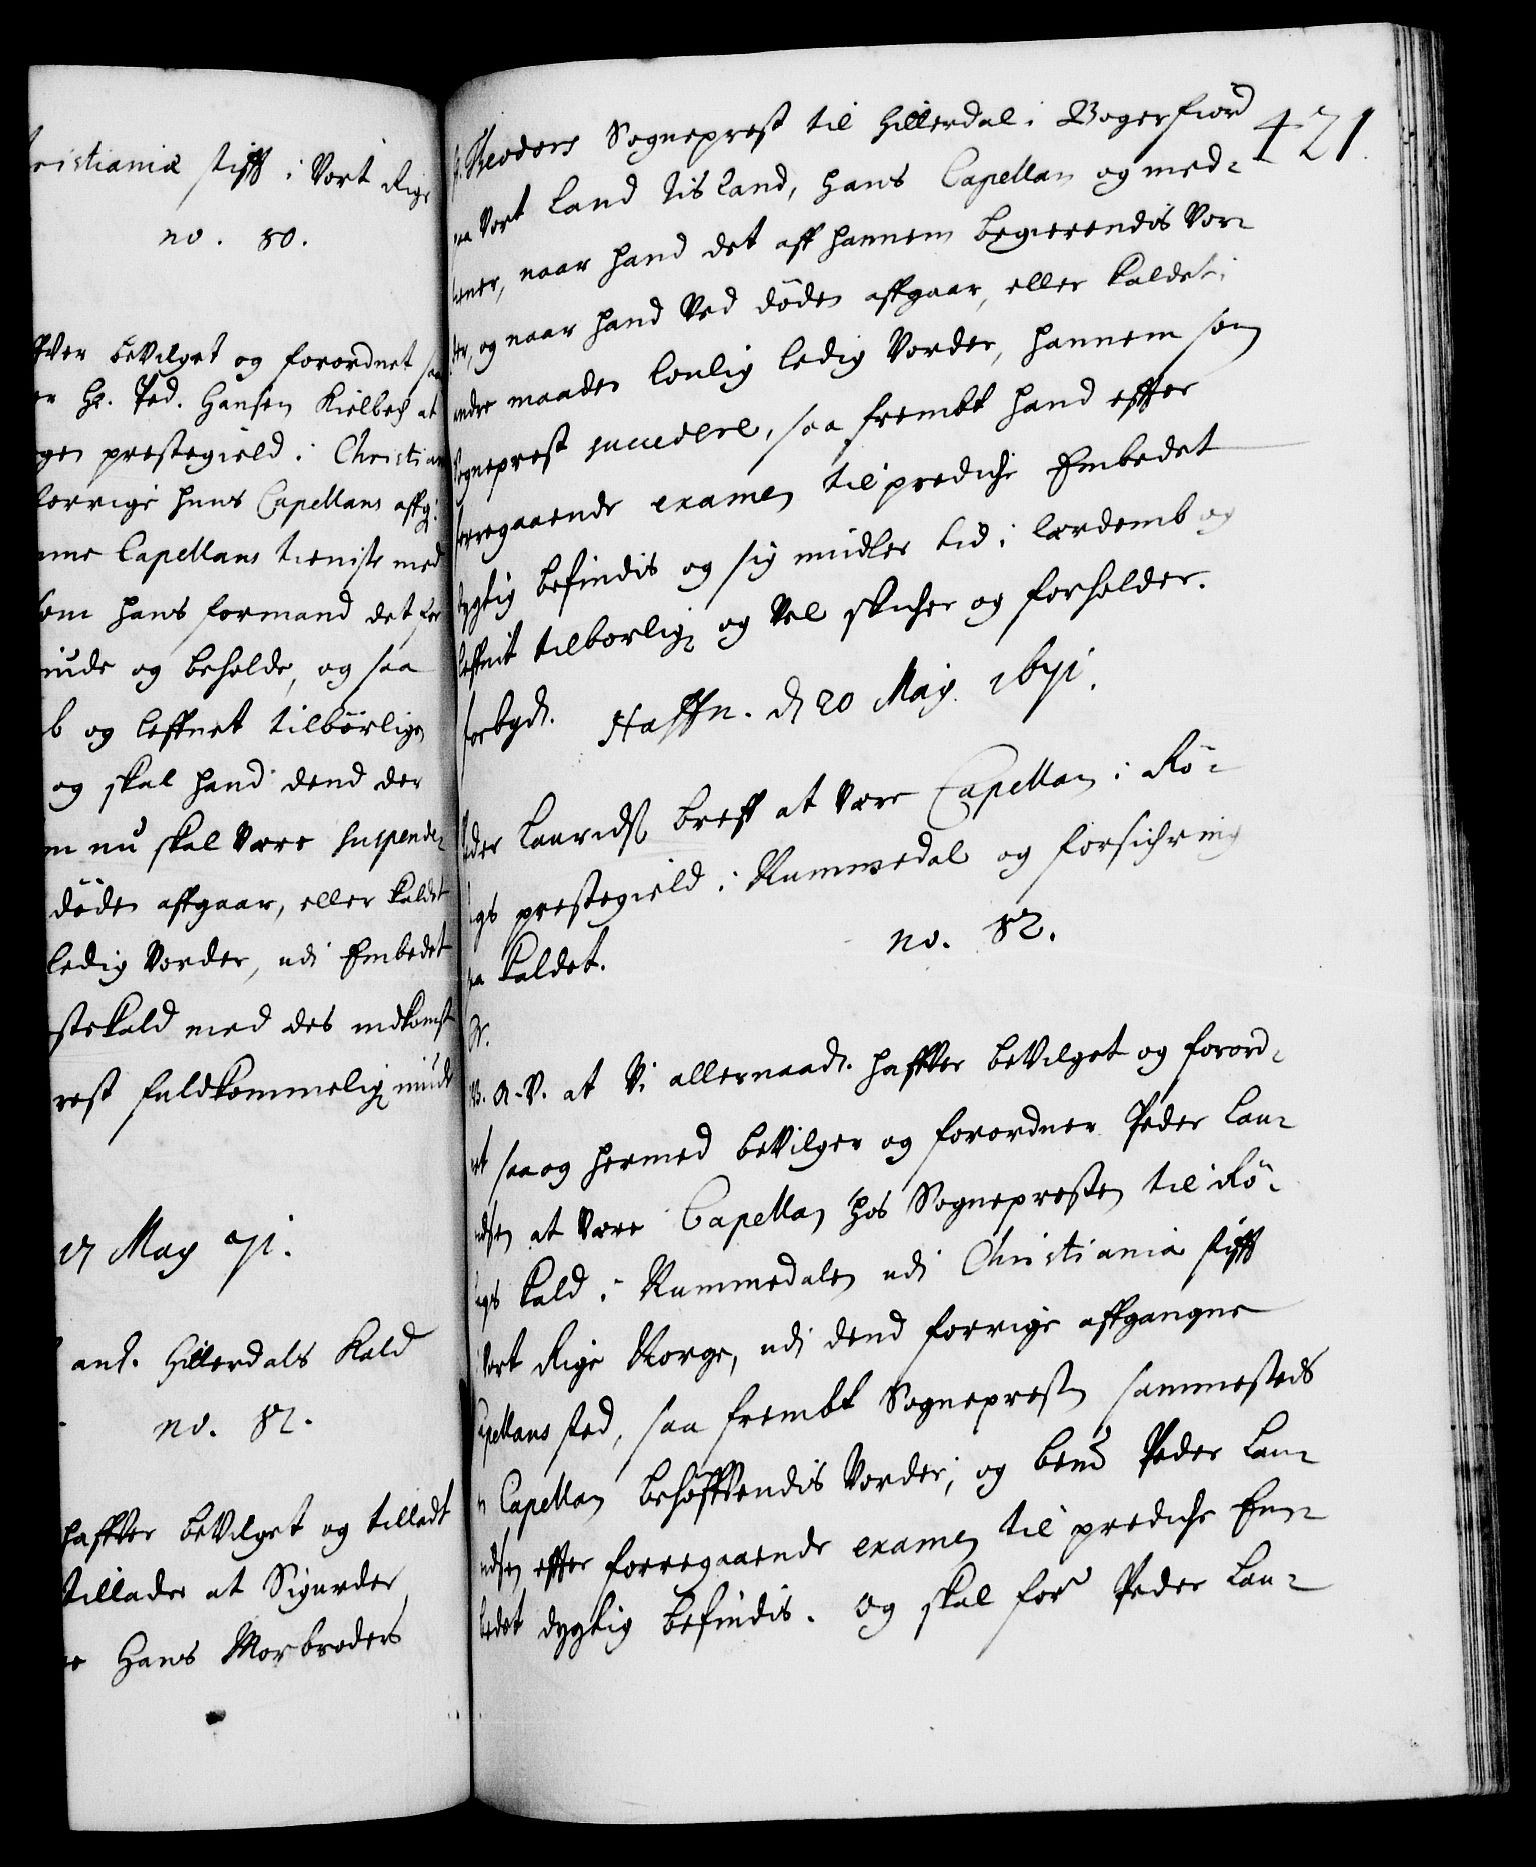 ristianiæ stifft i Vort Rige
no. 80.
bevilget og forordnet
Hr. Ped. Hansen Kielbech at
gen prestegield i Christian
forrige hans Capellans affg
Capellans tieniste med
om hans formand det for
niude og beholde, og saa
b og leffnet tilbörlige
og skal hand dend der
m nu skal være suspende-
döden affgaar, eller kaldet
ledig vorder, udi Embedet
stekald med des indkomst
rest fuldkommelig niude
17 May 71.
anl. Hillerdals Kald
no. 82.
haffver bevilget og tilladt
tillader at Sigurder
Hans Morbroders
421.
Theodors Sogneprest til Hillerdal i Bogerfiord
paa Vort Land Island, hans Capellan og med-
tiener, naar hand det aff hannem begierendis vor-
der, og naar hand ved döden affgaar, eller kaldet i
andre maader lovlig ledig vorder, hannem som
Sogneprest succedere, saa frembt hand effter
forregaaende examen til prediche Embedet
dygtig befindis og sig midler tid i lærdomb og
leffnit tilbørlig og vel skicher og forholder.
forbydr. Haffn. d 20 Maij 1671.
Peder Lauridss breff at være Capellan i Rö-
ags prestegield i Nummedal og forsichring
paa kaldet. no. 82.
G. A. V. at Vi allernaadr. haffver bevilget og forord-
net saa og hermed bevilger og forordner Peder Lau-
ridsen at være Capellan hos Sognepresten til Rö-
ags kald i Nummedalen udi Christiania stifft
Vort Rige Norge, udi dend forrige affgangne
Capellans sted, saa frembt Sognepresten sammesteds
n Capellan behöffvendis vorder; og bemd Peder Lau-
ridsen effter forregaaende examen til prediche Em-
bedet dygtig befindis. Og skal ford Peder Lau-